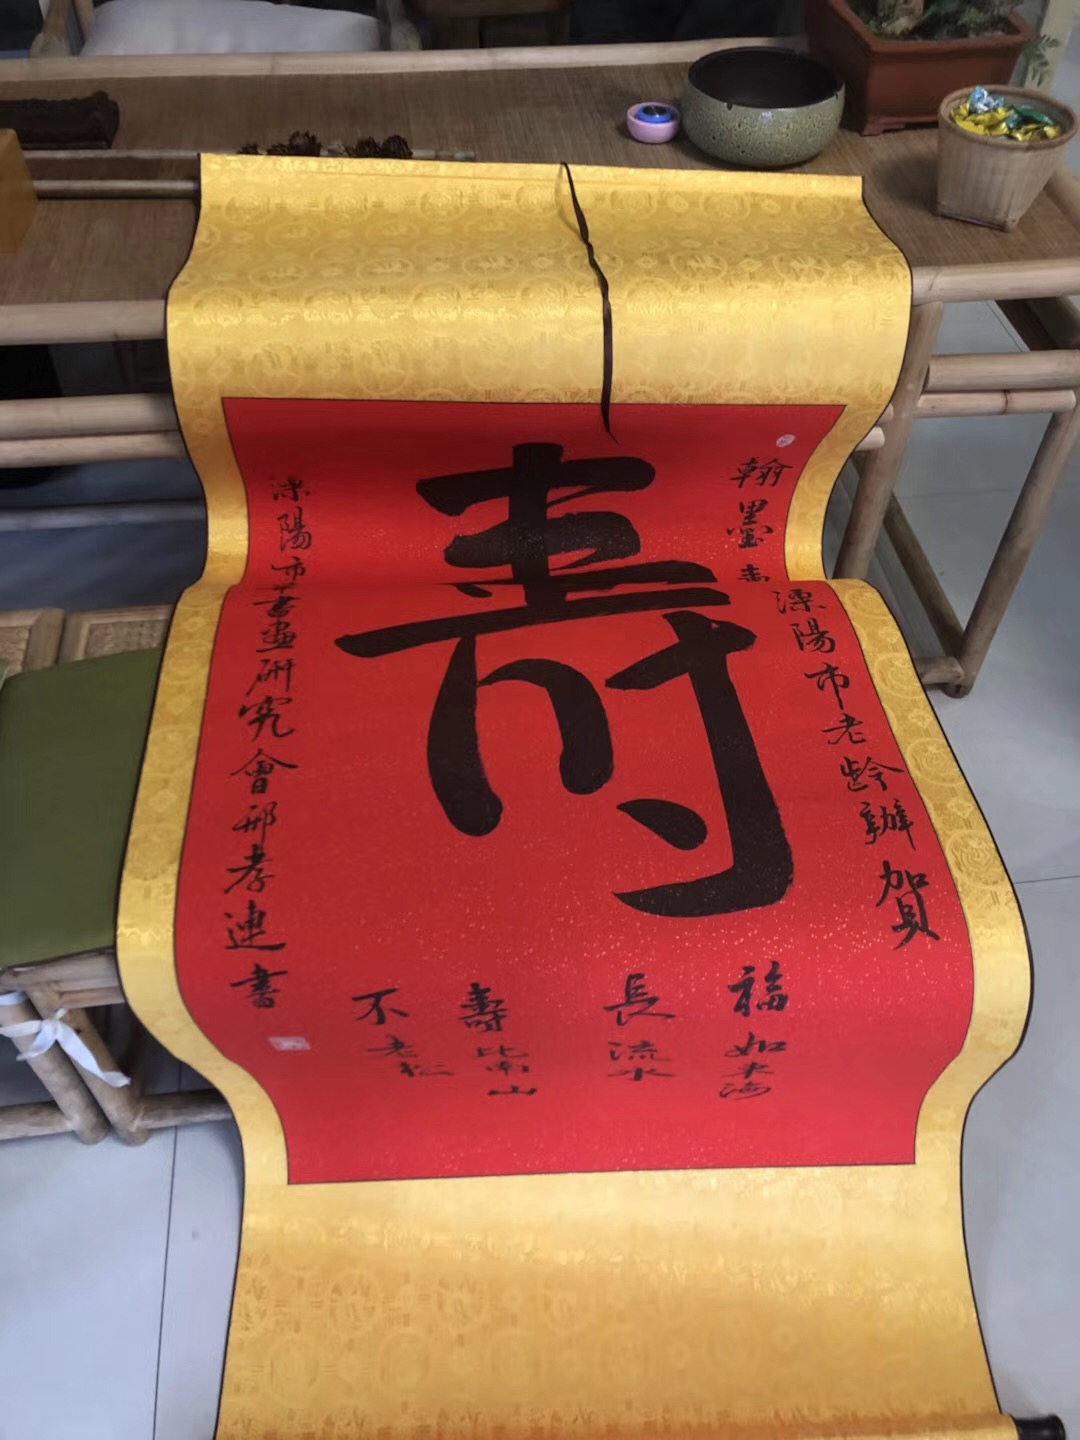 翰墨
溧陽市老齡辦賀
寿
福如东海
長流水
壽比南山
不老松
溧陽市書畫研究會邢孝連書